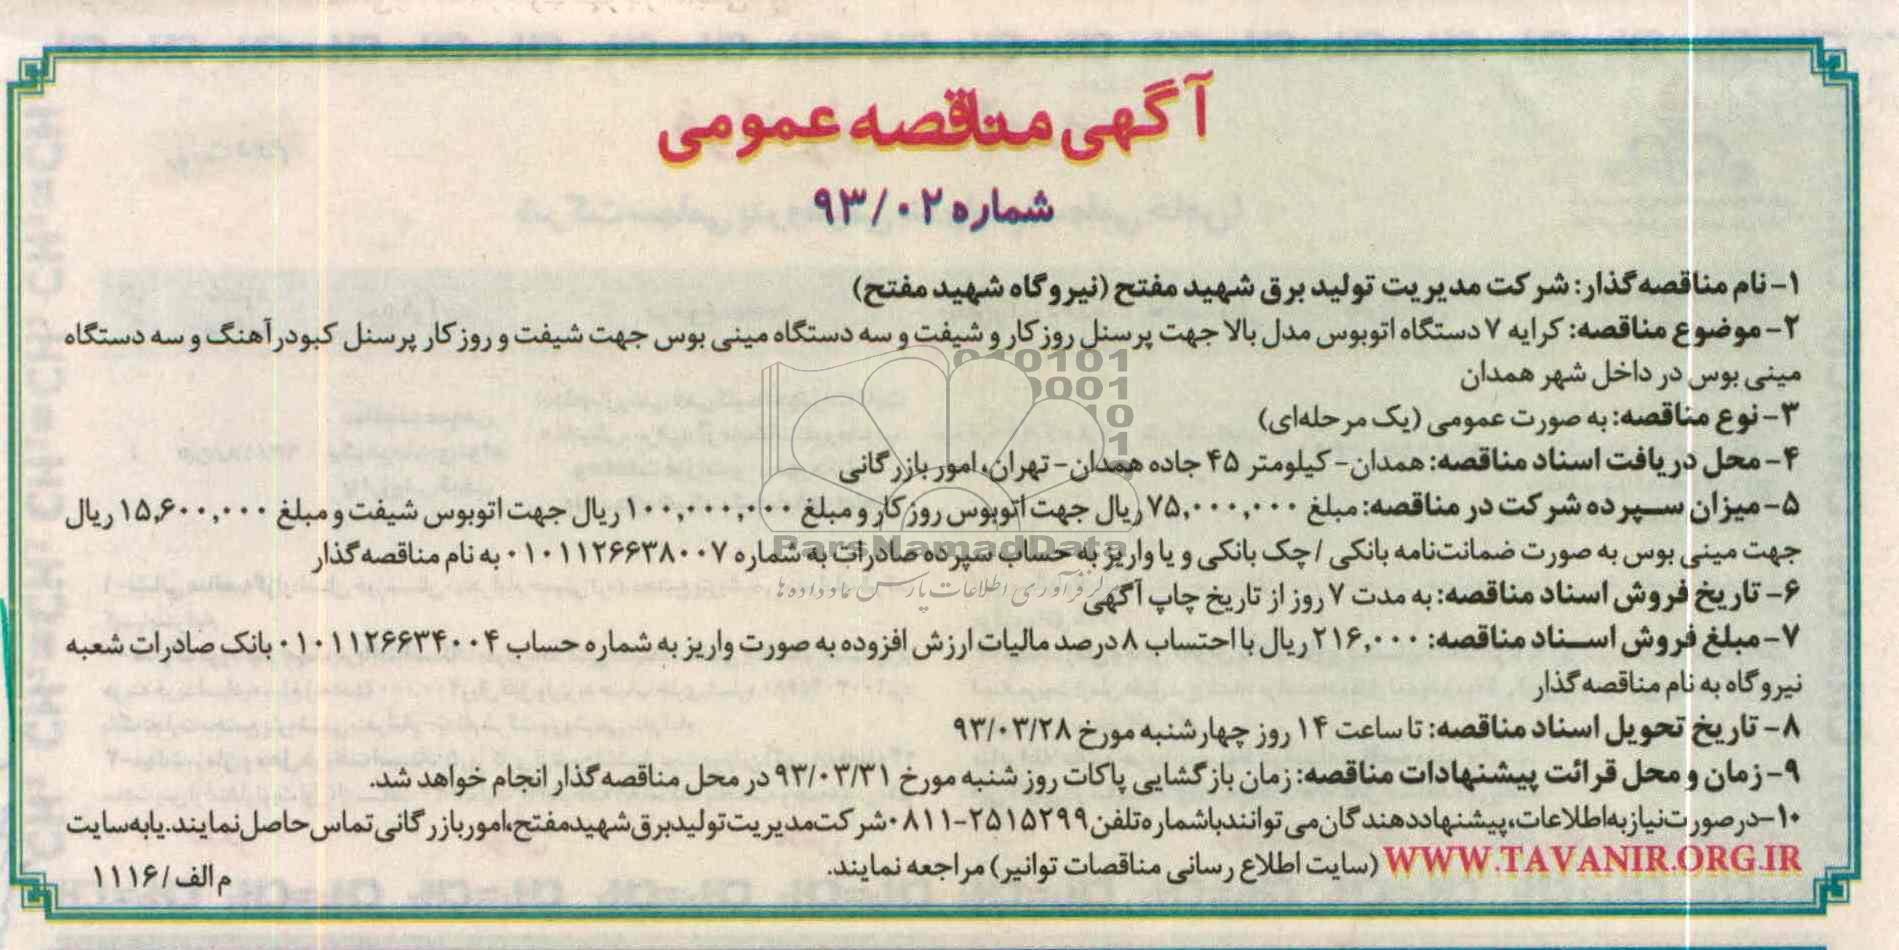 آگهی مناقصه عمومی
شماره ۹۳/۰۲
۱- نام مناقصه‌گذار: شرکت مدیریت تولید برق شهید مفتح (نیروگاه شهید مفتح)
۲- موضوع مناقصه: کرایه ۷ دستگاه اتوبوس مدل بالا جهت پرسنل روزکار و شیفت و سه دستگاه مینی بوس جهت شیفت و روزکار پرسنل کبودرآهنگ و سه دستگاه
مینی بوس در داخل شهر همدان
۳- نوع مناقصه: به صورت عمومی (یک مرحله‌ای)
۴- محل دریافت اسناد مناقصه: همدان- کیلومتر ۴۵ جاده همدان- تهران، امور بازرگانی
۵- میزان سپرده شرکت در مناقصه: مبلغ ۷۵,۰۰۰,۰۰۰ ریال جهت اتوبوس روزکار و مبلغ ۱۰۰,۰۰۰,۰۰۰ ریال جهت اتوبوس شیفت و مبلغ ۱۵,۶۰۰,۰۰۰ ریال
جهت مینی بوس به صورت ضمانت‌نامه بانکی / چک بانکی و یا واریز به حساب سپرده صادرات به شماره ۰۱۰۱۱۲۶۶۳۸۰۰۷ به نام مناقصه‌گذار
۶- تاریخ فروش اسناد مناقصه: به مدت ۷ روز از تاریخ چاپ آگهی
۷- مبلغ فروش اسناد مناقصه: ۲۱۶,۰۰۰ ریال با احتساب ۸ درصد مالیات ارزش افزوده به صورت واریز به شماره حساب ۰۱۰۱۱۲۶۶۳۴۰۰۴ بانک صادرات شعبه
نیروگاه به نام مناقصه‌گذار
۸- تاریخ تحویل اسناد مناقصه: تا ساعت ۱۴ روز چهارشنبه مورخ ۹۳/۰۳/۲۸
۹- زمان و محل قرائت پیشنهادات مناقصه: زمان بازگشایی پاکات روز شنبه مورخ ۹۳/۰۳/۳۱ در محل مناقصه‌گذار انجام خواهد شد.
۱۰- در صورت نیاز به اطلاعات، پیشنهاددهندگان می توانند با شماره تلفن ۲۵۱۵۲۹۹-۰۸۱۱ شرکت مدیریت تولید برق شهید مفتح، امور بازرگانی تماس حاصل نمایند. یا به سایت
WWW.TAVANIR.ORG.IR (سایت اطلاع رسانی مناقصات توانیر) مراجعه نمایند.
م الف / ۱۱۱۶
ParsNamadData
مرکز فرآوری اطلاعات پارس نماد داده ها